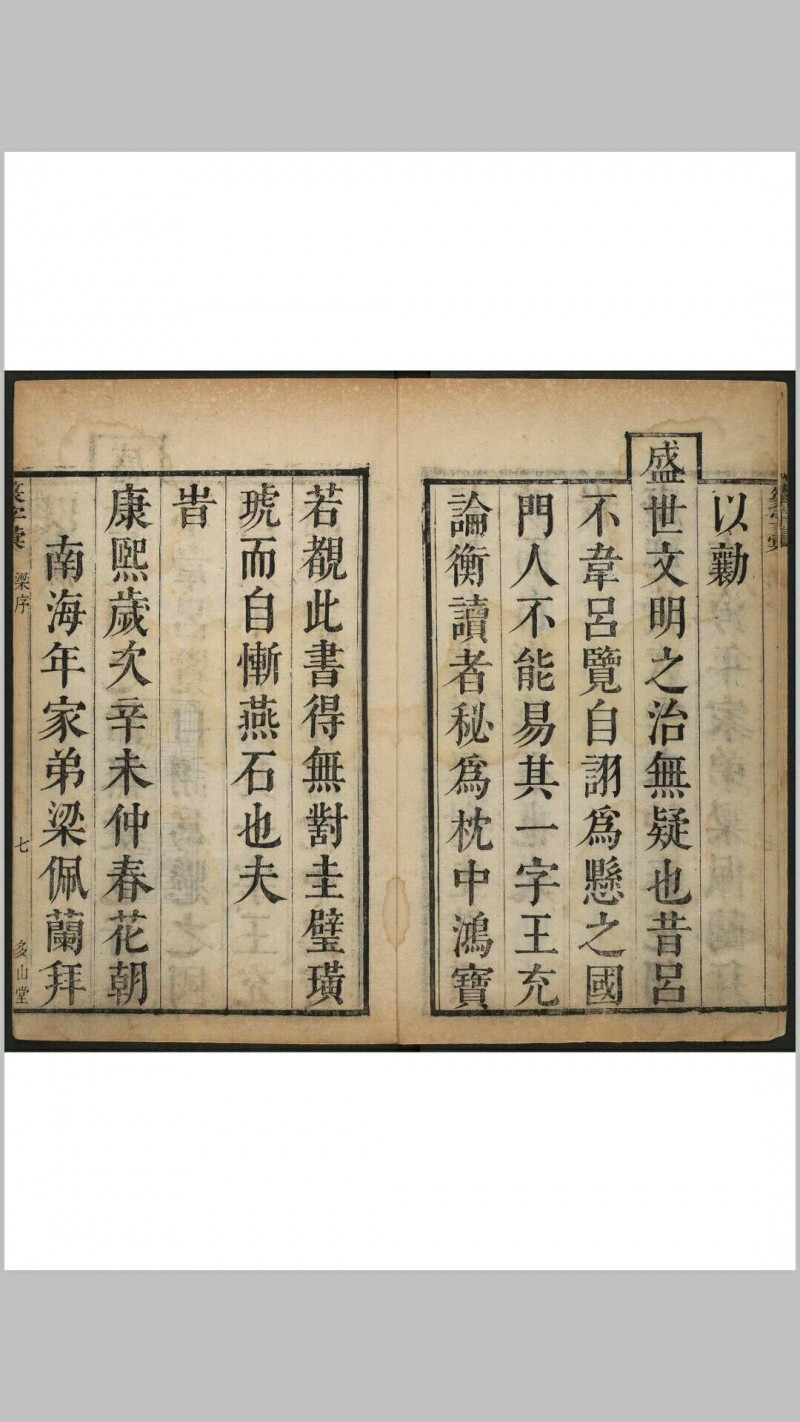 以勷
盛世文明之治無疑也昔呂
不韋呂覽自詡爲懸之國
門人不能易其一字王充
論衡讀者秘爲枕中鴻寶
若覩此書得無對圭璧璜
琥而自慚燕石也夫
旹
康熙歲次辛未仲春花朝
南海年家弟梁佩蘭拜
梁序
七
多山堂